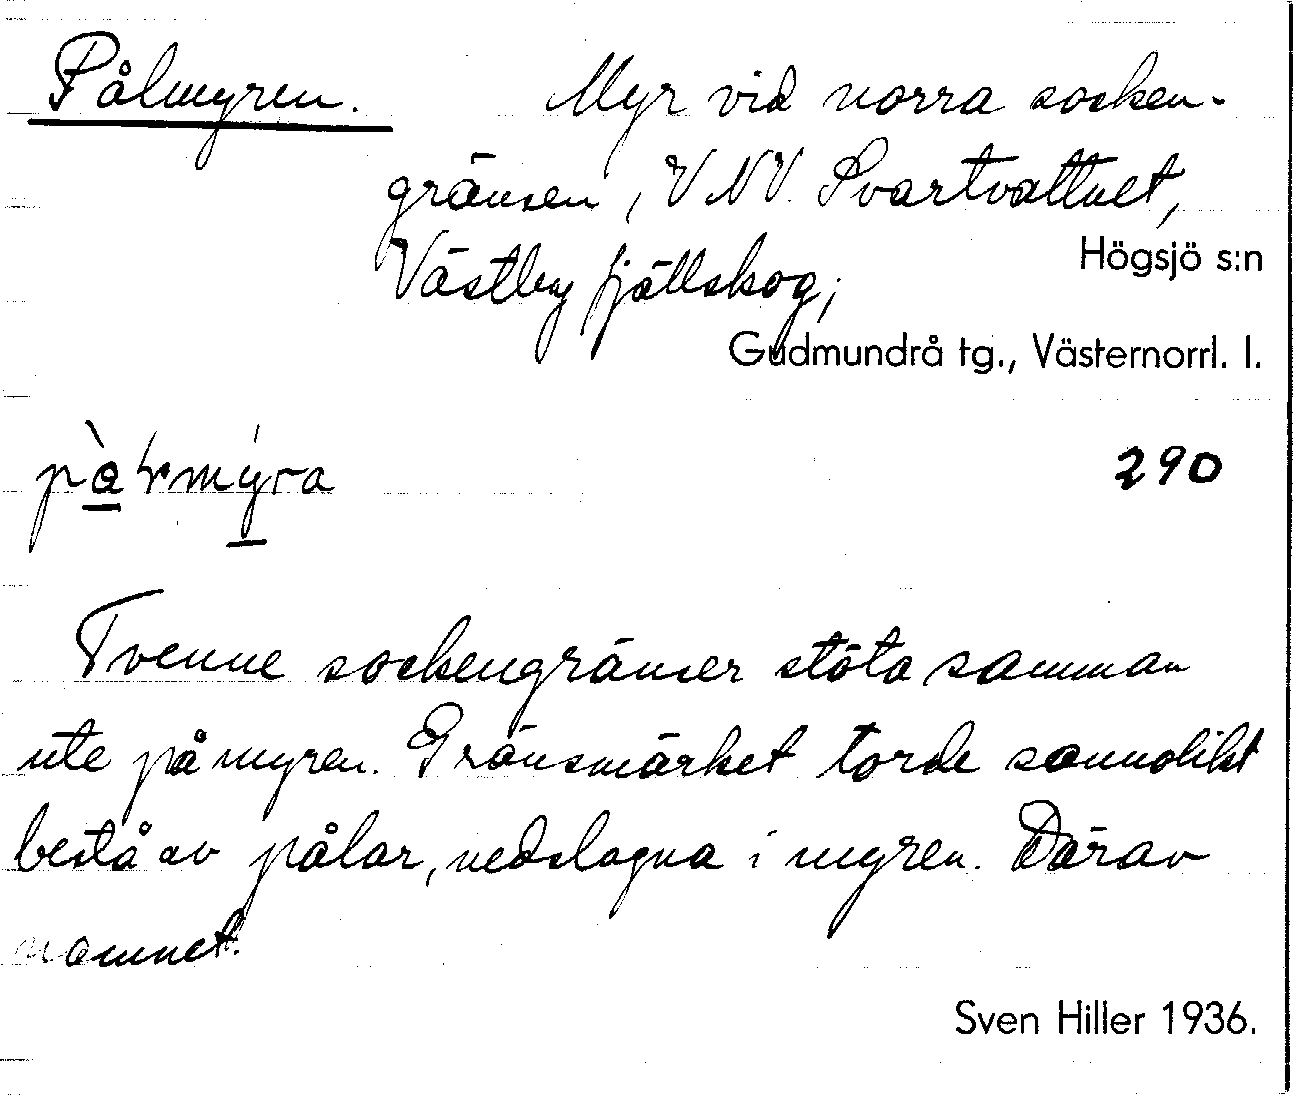 Pålmyren. Myr vid norra socken-
gränsen, VNV. Svartvattnet,
Västby fjällskog,
Högsjö s:n
Gudmundrå tg., Västernorrl. l.
290
Tvenne sockengränser stöta samman
ute på myren. Gränsmärket torde sannolikt
bestå av pålar, nedslagna i myren. Därav
namnet.
Sven Hiller 1936.